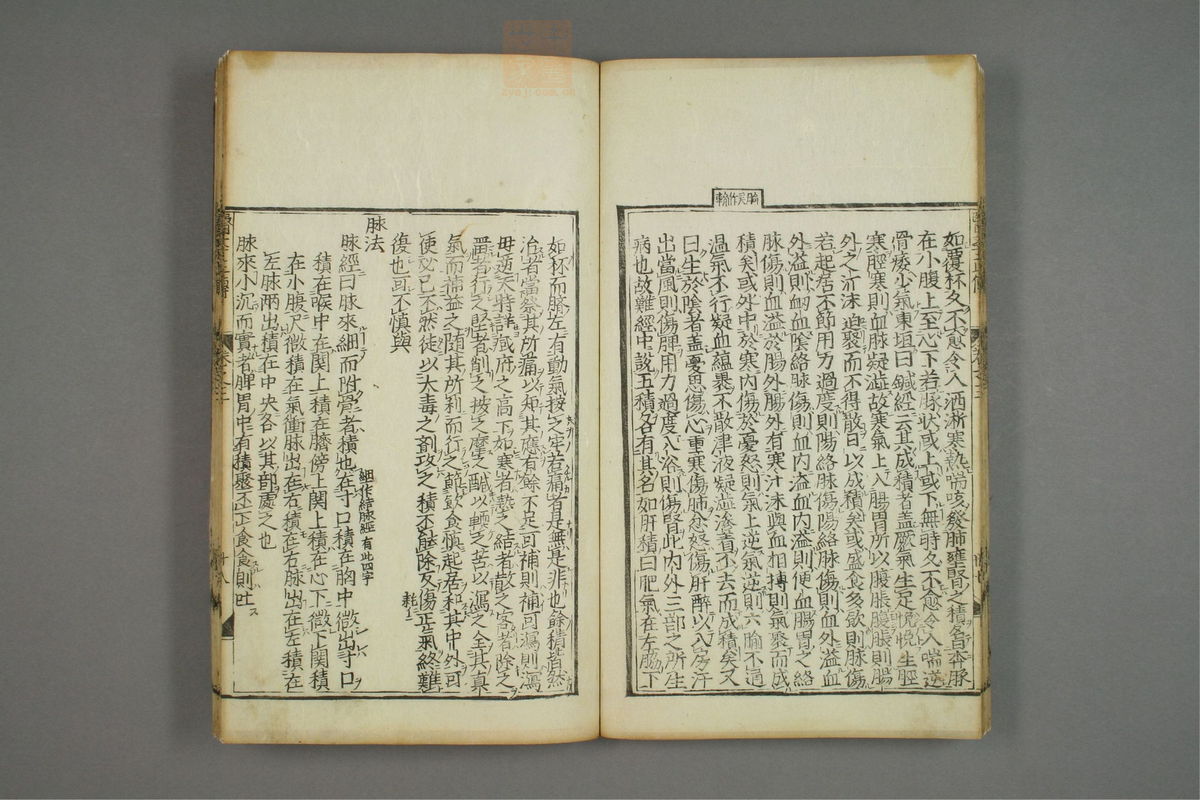 如覆杯久不愈令人洒淅寒熱喘咳發肺雍腎之積名曰奔豚
在小腹上至心下若豚状或上或下無時久不愈令人喘逆
骨痿少氣東垣曰鍼經云其成積者盖厥氣生足悗悗生脛
寒脛寒則血脉凝澁故寒氣上入腸胃所以䐜脹䐜脹則腸
外之汁沫迫聚而不得散日以成積矣或盛食多飲則脉傷
若起居不節用力過度則陽絡脉傷陽絡脉傷則血外溢血
外溢則衂血隂絡脉傷則血内溢血内溢則便血腸胃之絡
脉傷則血溢於腸外腸外有寒汁沫與血相摶則氣聚而成
積矣或外中於寒内傷於憂怒則氣上逆氣逆則六腧不通
温氣不行凝血蘊裹不散津液凝澁滲着不去而成積矣又
曰生於陰者盖憂思傷心重寒傷肺忿怒傷肝醉以入房汗
出當風則傷脾用力過度入浴則傷腎此内外三部之所生
病也故難經中說五積各有其名如肝積曰肥氣在左脇下
如杯而臍左有動氣按之牢若痛者是無是非也餘積皆然
治者當察其所痛以知其應有餘不足可補則補可瀉則瀉
毋逆天時詳臓府之高下如寒者熱之結者散之客者除之
畱者行之堅者削之按之摩之醎以軟之苦以瀉之全其真
氣而補益之随其所利而行之節飲食慎起居和其中外可
使必已不然徒以大毒之剤攻之積不能除反傷正氣終難
復也可不慎與
脉法
脉經曰脉來細而附骨者積也在寸口積在胸中微出寸口
細作結脉經有此四字
積在喉中在関上積在臍傍上関上積在心下微下関積
在小腹尺微積在氣衝脉出在右積在右脉出在左積在
左脉兩出積在中央各以其部處之也
脉來小沉而實者脾胃中有積聚不下食食則吐